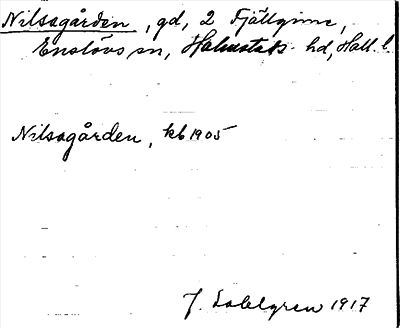 Nilsagården, gd, 2 Fjällginne,
Enslövs sn, Halmstads hd, Hall. l.
Nilsagården, kb 1905
J. Sahlgren 1917